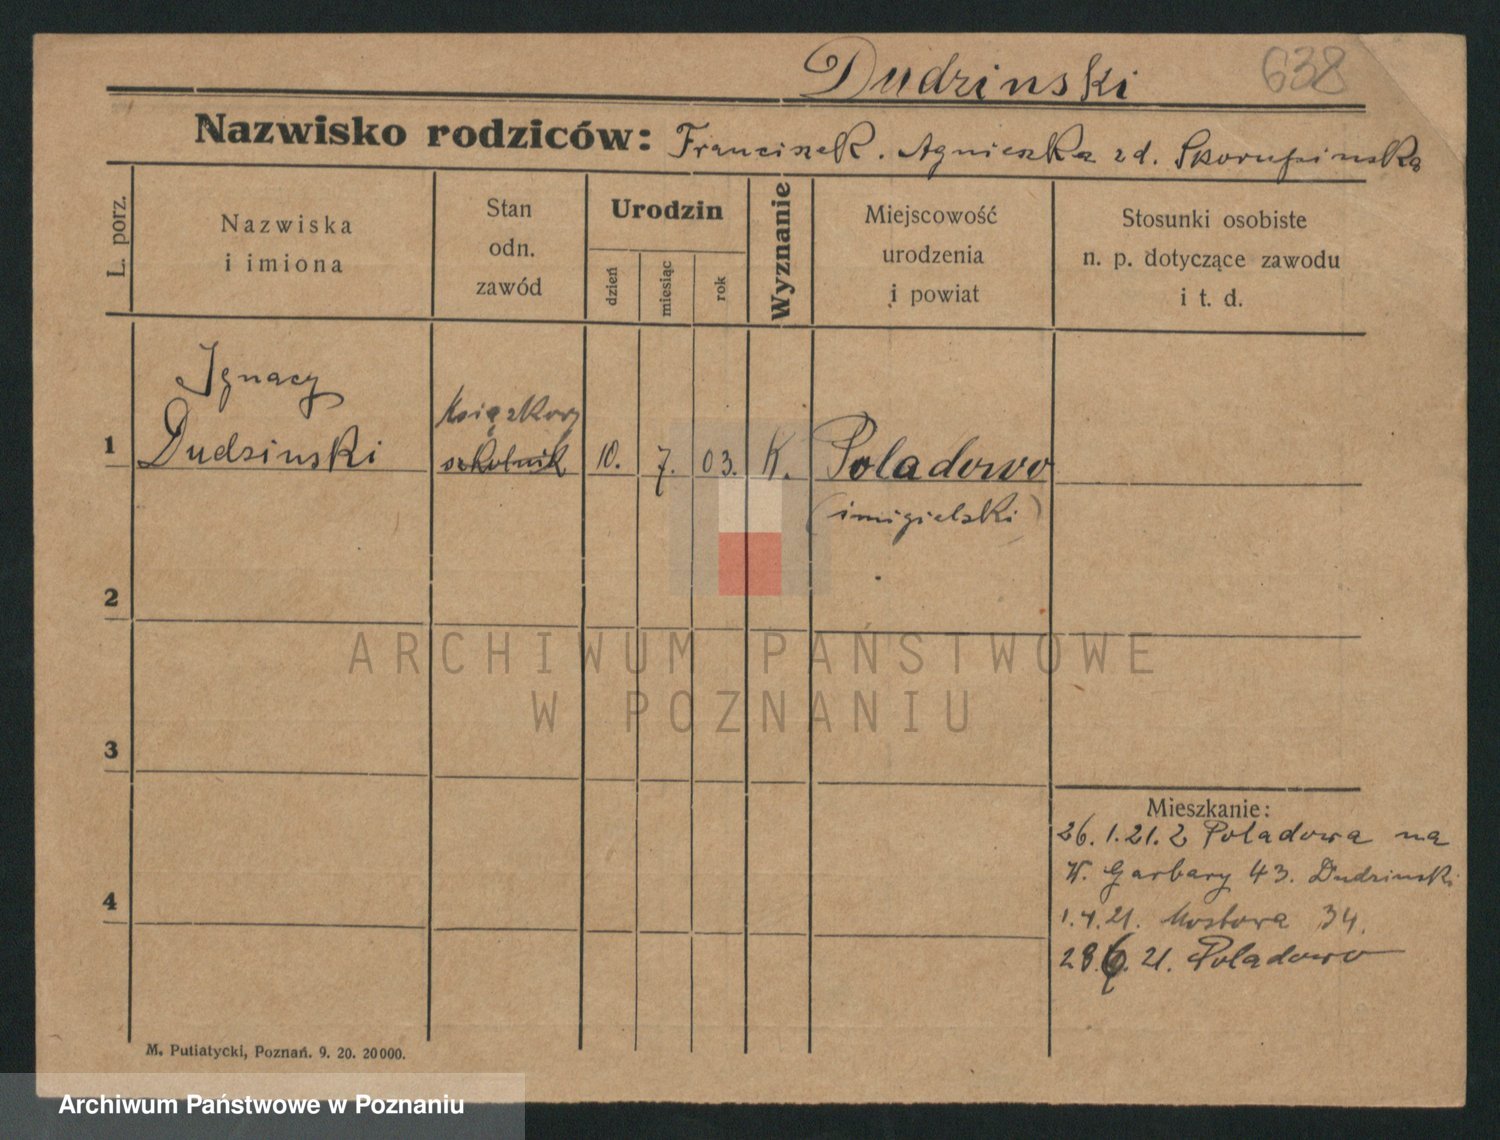 Dudzinski 638
Nazwisko rodziców: Franciszek. Agnieszka zd. Skorupinska
L. porz.
Nazwiska
i imiona
Stan
odn.
zawód
Urodzin
dzień
miesiąc
rok
Wyznanie
Miejscowość
urodzenia
i powiat
Stosunki osobiste
n. p. dotyczące zawodu
i t. d.
Ignacy
Książkowy
1 Dudzinski szkolnik 10. 7. 03. K. Poladowo
(śmigielski)
2
ARCHIWUM PAŃSTWOWE
W POZNANIU
3
Mieszkanie:
26. 1. 21. z Poladowa na
W. Garbary 43. Dudzinski
4
1. 4. 21. Mostowa 34.
28. 6. 21. Poladowo
M. Putiatycki, Poznań. 9. 20. 20000.
Archiwum Państwowe w Poznaniu